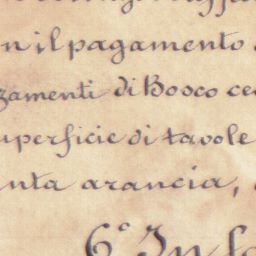 n il pagamento
zamenti di Bosco ce
uperficie di tavole
nta arancia,
6° In